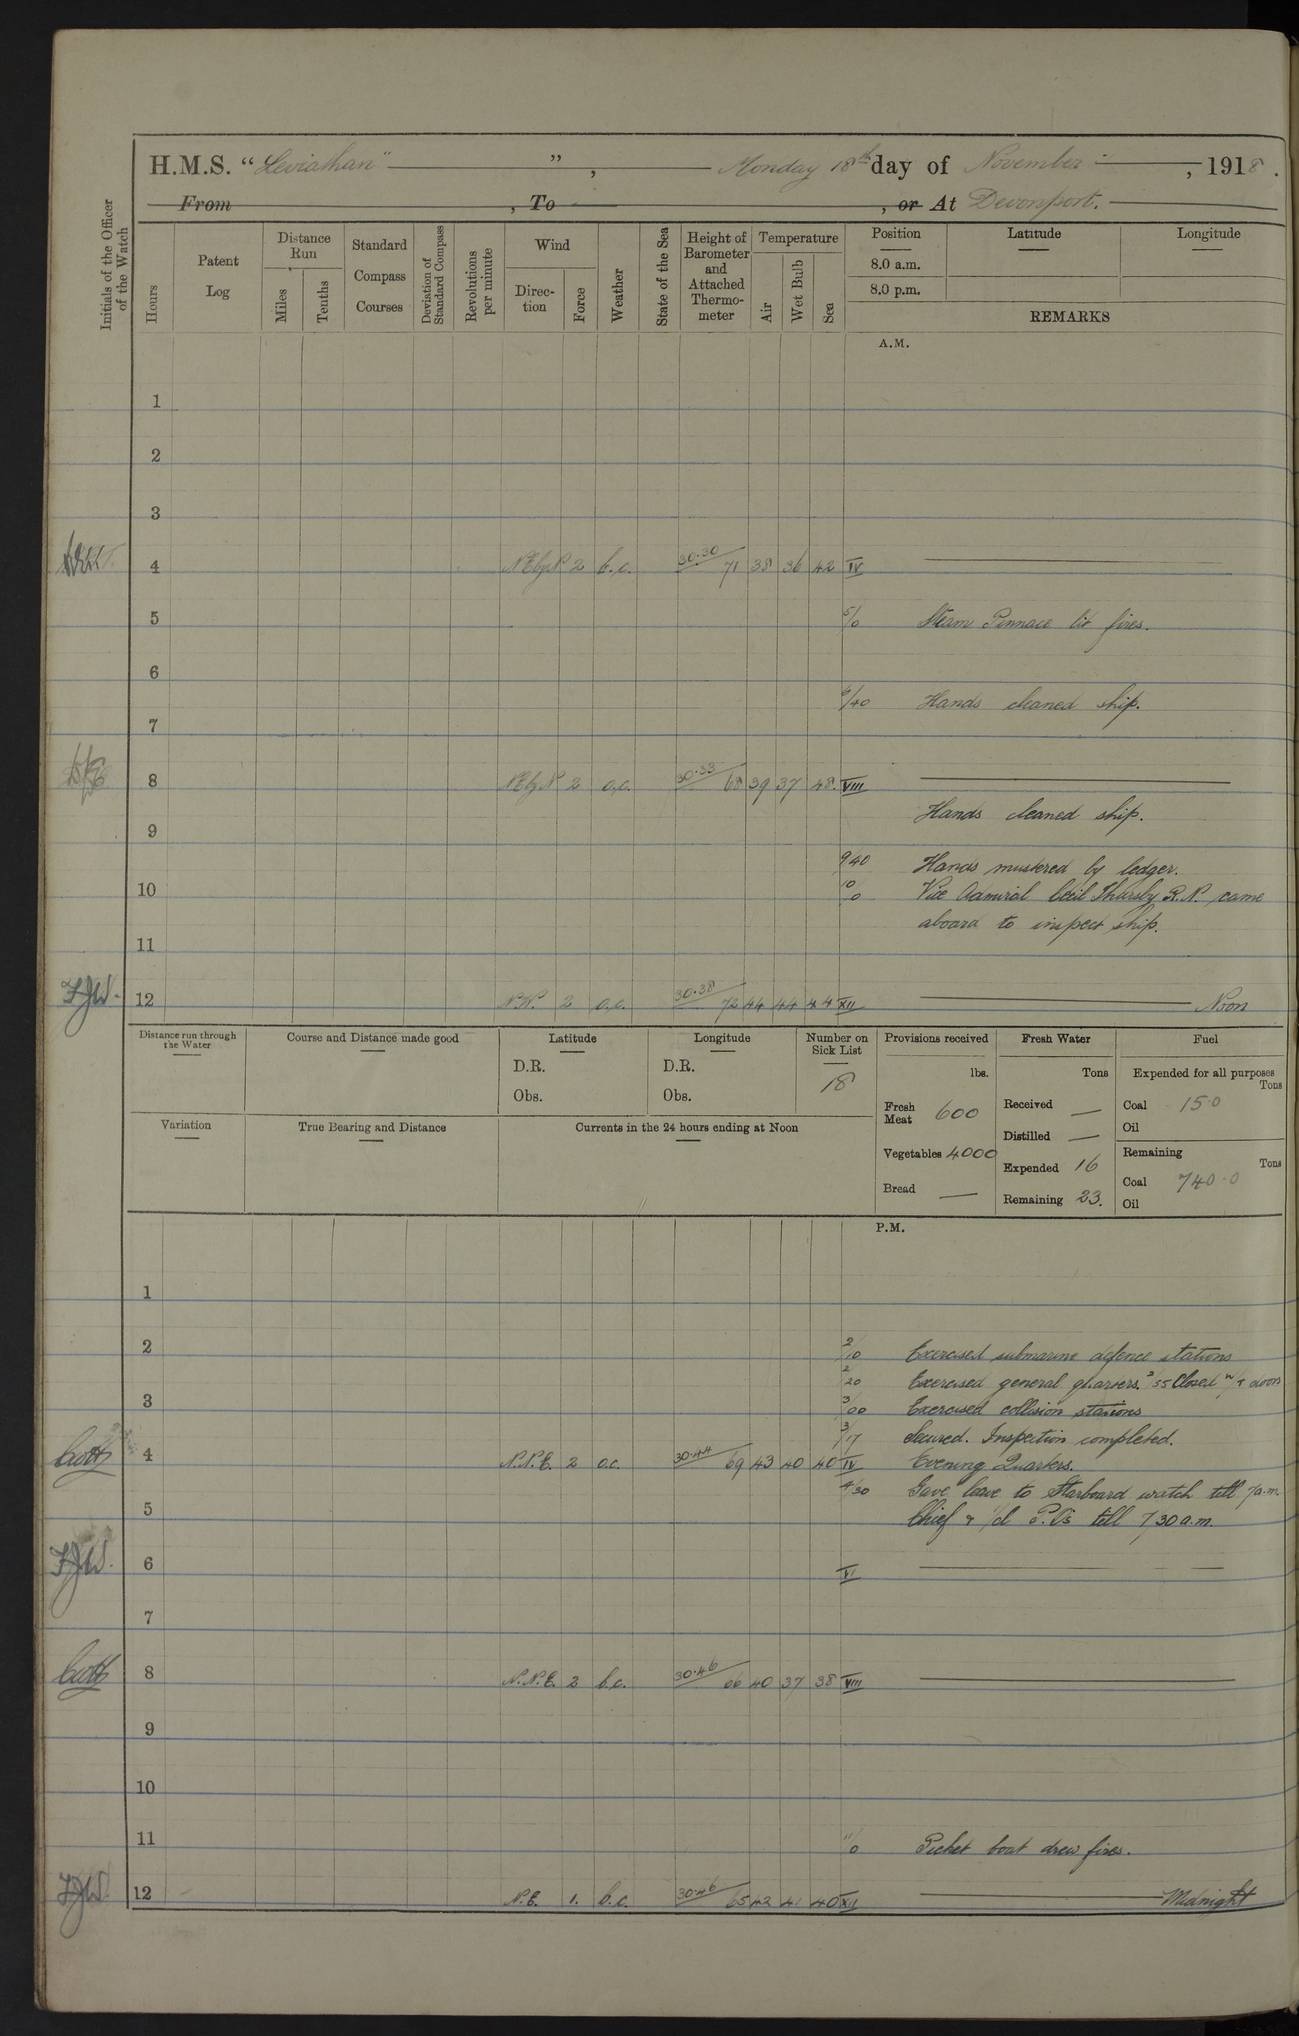 H.M.S. "Leviathan" ", Monday 18th day of November, 1918.
From , To , or At Devonport.
Initials of the Officer of the Watch
Hours
Patent Log
Distance Run
Miles
Tenths
Standard Compass Courses
Deviation of Standard Compass
Revolutions per minute
Wind
Direction
Force
Weather
State of the Sea
Height of Barometer and Attached Thermometer
Temperature
Air
Wet Bulb
Sea
Position
8.0 a.m.
8.0 p.m.
Latitude
Longitude
REMARKS
A.M.
1
2
3
4 N.EbyN 2 b.c. 30.30 71 38 36 42 IV
5 5/0 Steam Pinnace lit fires.
6
6/40 Hands cleaned ship.
7
8 NEbyN 2 o.c. 30.33 68 39 37 48. VIII
Hands cleaned ship.
9
9 40 Hands mustered by ledger.
10 10/0 Vice Admiral Cecil Thursby R.N. came
aboard to inspect ship.
11
F.J.W. 12 N.W. 2 o.c. 30.38 72 44 44 44 XII Noon
Distance run through the Water
Course and Distance made good
Latitude
D.R.
Obs.
Longitude
D.R.
Obs.
Number on Sick List
18
Provisions received
lbs.
Fresh Meat 600
Vegetables 4000
Bread —
Fresh Water
Tons
Received —
Distilled —
Expended 16
Remaining 23.
Fuel
Expended for all purposes
Tons
Coal 15.0
Oil
Remaining
Tons
Coal 740.0
Oil
Variation
True Bearing and Distance
Currents in the 24 hours ending at Noon
P.M.
1
2 2/10 Exercised submarine defence stations
2/20 Exercised general quarters. 2/55 Closed w/t doors
3 3/00 Exercised collision stations
3/17 Secured. Inspection completed.
4 N.N.E. 2 o.c. 30.44 69 43 40 40 IV Evening Quarters.
4/30 Gave leave to Starboard watch till 7 a.m.
5 Chief & 1/cl P.O's till 7 30 a.m.
F.J.W. 6 VI
7
8 N.N.E. 2 b.c. 30.46 66 40 37 38 VIII
9
10
11 11/0 Picket boat drew fires.
F.J.W. 12 N.E. 1. b.c. 30.46 65 42 41 40 XII Midnight